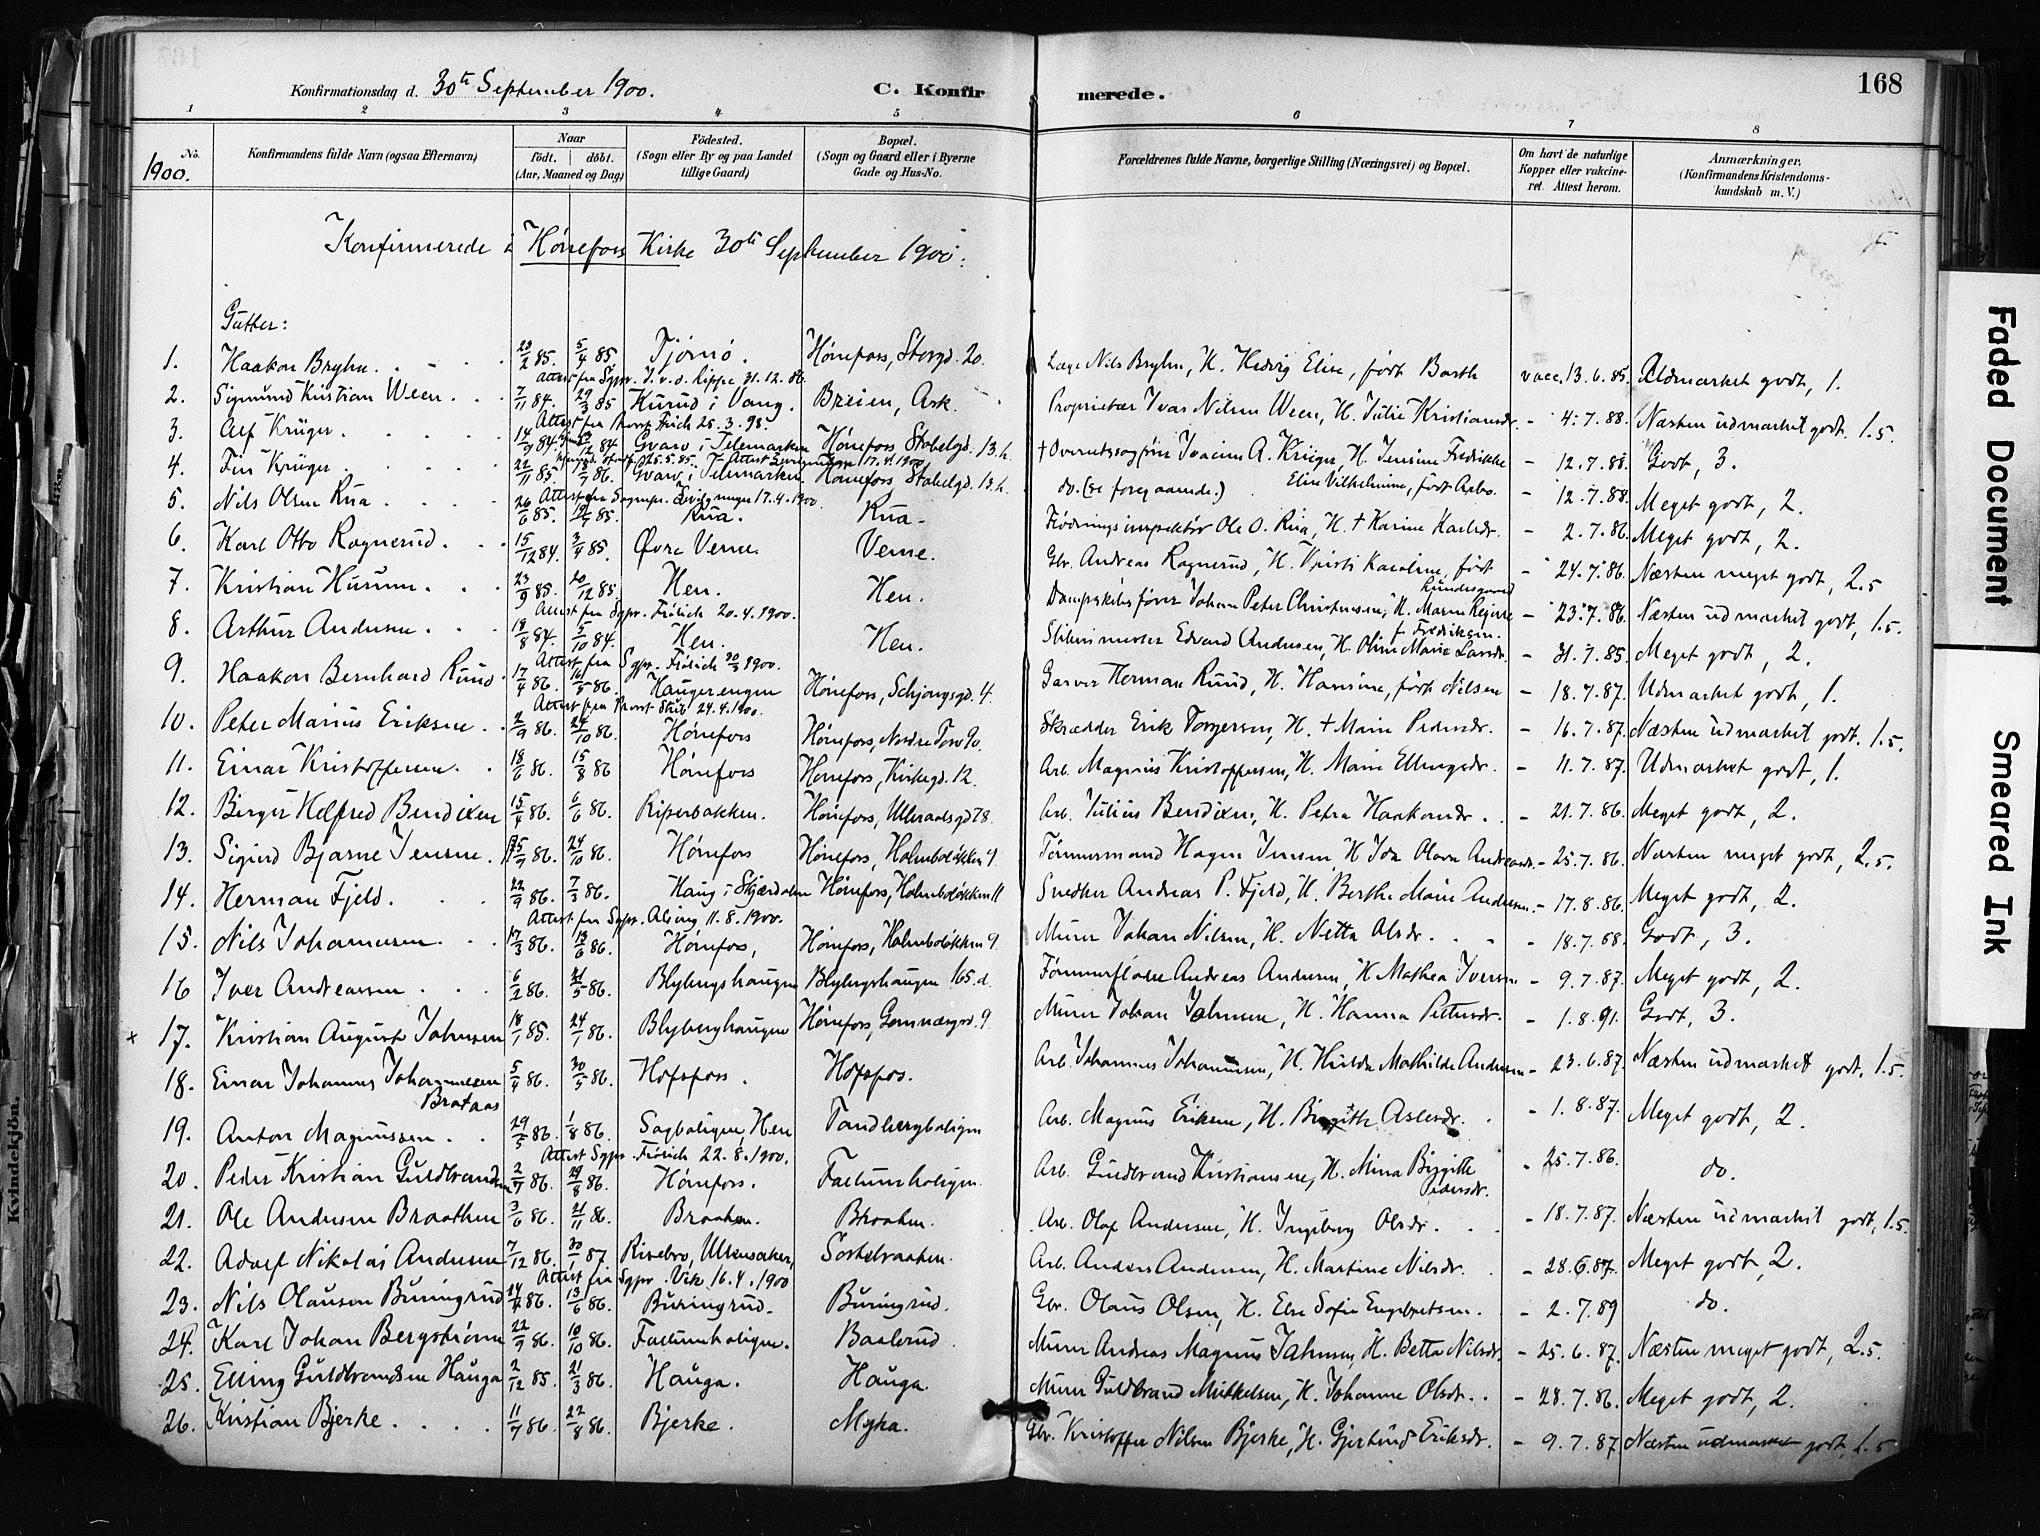 168
Konfirmationsdag d. 30te September 1900. C. Konfirmerede.
1 2 3 4 5 6 7 8
No. Konfirmandens fulde Navn (ogsaa Efternavn) Naar födt. döbt. (Aar, Maaned og Dag) Födested. (Sogn eller By og paa Landet tillige Gaard) Bopæl. (Sogn og Gaard eller i Byerne Gade og Hus-No. Forældrenes fulde Navne, borgerlige Stilling (Næringsvei) og Bopæl. Om havt de naturlige Kopper eller vakcineret. Attest herom. Anmærkninger. (Konfirmandens Kristendomskundskab m. V.)
1900.
Konfirmerede i Hönefoss Kirke 30te September 1900.
Gutter:
1. Haakon Bryhn. 5/4 85. Tjömö. Hönefoss, Storgd. 20. Læge Nils Bryhn, H. Hedvig Elise, födt Barth vacc. 13.6.85. Udmærket godt, 1.
31.12.86.
2. Sigmund Kristian Ween. 7/11 84. 29/3 85 Kurud i Vang. Breien, Ask. Proprietær Ivar Nilsen Ween, H. Julie Kristiansdr. - 4.7.88. Næsten udmærket godt. 1.5.
3. Alf Krüger. 14/9 84 Gvarv i Telemarken Hönefoss Stabelgd. 13.h. † Overretssagförer Joacim A. Krüger, H. Jensine Fredrikke Elise Vilhelmine, födt Aabo. - 12.7.88. Godt, 3.
4. Finn Krüger. 22/11 85. Gvarv i Telemarken. Hönefoss Stabelgd. 13.h. do. (se foregaaende.) - 12.7.88. Meget godt, 2.
Attest fra Sognepr. 17.4.1900.
5. Nils Olsen Rua. 26/6 85. 19/7 85. Rua. Rua. Flödningsinspektör Ole O. Rua, H. † Karine Karlsdr. - 2.7.86. Meget godt, 2.
6. Karl Otto Rognerud. 15/12 84. 3/4 85. Övre Veme. Veme. Gbr. Andreas Rognerud, H. Kristi Karoline, födt Lundesgaard - 24.7.86. Næsten meget godt, 2.5
7. Kristian Hurum. 23/9 85. 20/12 85. Hen. Hen. Dampskibsförer Johan Peter Christensen, H. Maren Regine f. Fredriksen. - 23.7.86. Næsten udmærket godt, 1.5.
Attest fra Sgpr. Frölich 20.4.1900.
8. Arthur Andersen. 18/8 84. 5/10 84. Hen. Hen. Sliberimester Edvard Andersen, H. Oline Marie Larsdr. - 31.7.85. Meget godt, 2.
Attest fra Sgpr. Frölich 30/3 1900.
9. Haakon Bernhard Ruud. 17/4 86. 16/5 86. Haugerengen Hönefoss, Schjongsgd. 4. Garver Herman Ruud, H. Hansine, födt Nilsen - 18.7.87. Udmærket godt, 1.
Attest fra Provst 24.4.1900.
10. Peter Marius Eriksen. 2/9 86. 24/10 86. Hönefoss Hönefoss, Nordre Torv 90. Skrædder Erik Torgersen, H. † Marie Pedersdr. - 16.7.87. Næsten udmærket godt. 1.5.
11. Einar Kristoffersen. 18/6 86. 15/8 86 Hönefoss Hönefoss, Kirkegd. 12. Arb. Magnus Kristoffersen, H. Marie Ellingsdr. - 11.7.87. Udmærket godt, 1.
12. Birger Helfred Bendixen 15/4 86. 6/6 86. Riperbakken. Hönefoss, Ulleraalsgd 78. Arb. Julius Bendixen, H. Petra Haakonsdr. - 21.7.86. Meget godt, 2.
13. Sigurd Bjarne Jensen. 25/9 86. 24/10 86. Hönefoss Hönefoss, Holmbolökken 9. Tömmermand Hagen Jensen H. Ida Olava Andreasdr. - 25.7.86. Næsten meget godt, 2.5.
14. Herman Fjeld. 86. 7/3 86. Haug i Skjærdalen Hönefoss, Holmbolökken 11 Snedker Andreas P. Fjeld, H. Berthe Marie Andersen. - 17.8.86. Meget godt, 2.
Attest fra Sgpr. Alsing 11.8.1900.
15. Nils Johannesen. 17/3 86. 13/6 86. Hönefoss, Hönefoss, Holmbolökken 9. Murer Johan Nilsen, H. Netta Olsdr. - 18.7.88. Godt, 3.
16 Iver Andreassen 6/2 86. 21/5 86. Blybergshaugen Blybergshaugen 165.d. Tömmerflöder Andreas Andersen, H. Mathea Iversen - 9.7.87. Meget godt, 2.
x 17. Kristian August Jahnsen 18/1 85. 24/1 86. Blyberghaugen Hönefoss, Gomnæsgd. 9. Murer Johan Jahnsen, H. Hanna Pettersdr. - 1.8.91. Godt, 3.
18. Einar Johannes Johannesen Brataas 5/4 86. 30/5 86. Hofsfoss. Hofsfos. Arb. Johannes Johannesen, H. Hulda Mathilde Andersen - 23.6.87. Næsten udmærket godt. 1.5.
19. Anton Magnussen. 29/5 86. 1/8 86. Sagboligen, Hen Tandbergboligen Arb. Magnus Eriksen, H. Birgitte Aslesdr. - 1.8.87. Meget godt, 2.
Attest Sgpr. Frölich 22.8.1900.
20. Peder Kristian Guldbrandsen 2/7 86. 29/8 86. Hönefoss. Follumboligen. Arb. Guldbrand Kristiansen, H. Mina Birgitte Pedersdr. - 25.7.86. do.
21. Ole Andersen Braathen 3/6 86. 21/11 86. Braaten. Braaten. Arb. Olaf Andersen, H. Ingeborg Olsdr. - 18.7.87. Næsten udmærket godt, 1.5.
22. Adolf Nikolai Andersen 7/12 86. 30/1 87. Risebro, Ullensaker, Sortebraaten. Arb. Anders Andersen, H. Martine Nilsdr. - 28.6.87. Meget godt, 2.
Attest fra Sgpr. Vik 16.4.1900
23. Nils Olausen Buringrud 86. 13/6 86. Buringrud. Buringrud. Gbr. Olaus Olsen, H. Else Sofie Engebretsen. - 2.7.89 do.
24. Karl Johan Bergström 22/9 86. 10/10 86. Follumboligen. Baalerud. Murer Andreas Magnus Jahnsen, H. Betta Nilsdr. - 25.6.87. Næsten meget godt, 2.5.
25. Elling Guldbrandsen Hauga 2/12 85. 21/3 86. Hauga. Hauga. Murer Guldbrand Mikkelsen, H. Johanne Olsdr. - 28.7.86. Meget godt, 2.
26. Kristian Bjerke. 11/7 86. 22/8 86. Bjerke. Myra. Gbr. Kristoffer Nilsen Bjerke, H. Gjertrud Eriksdr. - 9.7.87 Næsten udmærket godt, 1.5
Faded Document
Smeared Ink
Kvindekjön.